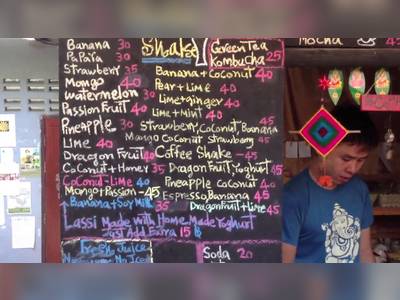 Banana 30
Papaia 30
Strawberry 35
Mango 40
Watermelon 30
Passion Fruit 40
Pineapple 30
Lime 40
Dragon Fruit 40
Coconut+Honey 35
Coconut-Lime 40
Mango+Passion-45
Banana+Soy Milk 35
Shake
Banana+Coconut 40
Pear+Lime 40
Lime+ginger 40
Lime+Mint 40
Strawberry, Coconut, Banana
Mango Coconut Strawberry 45
Coffee Shake-45
Dragon Fruit, Yoghurt 45
Pineapple Coconut 40
Espresso, Banana 45
Dragon Fruit+Lime 45
Lassi Made with Home Made Yoghurt
Just Add Extra 15 ฿
Green Tea
Kombucha 25
Fresh Juice
Soda 20
Mocha 45